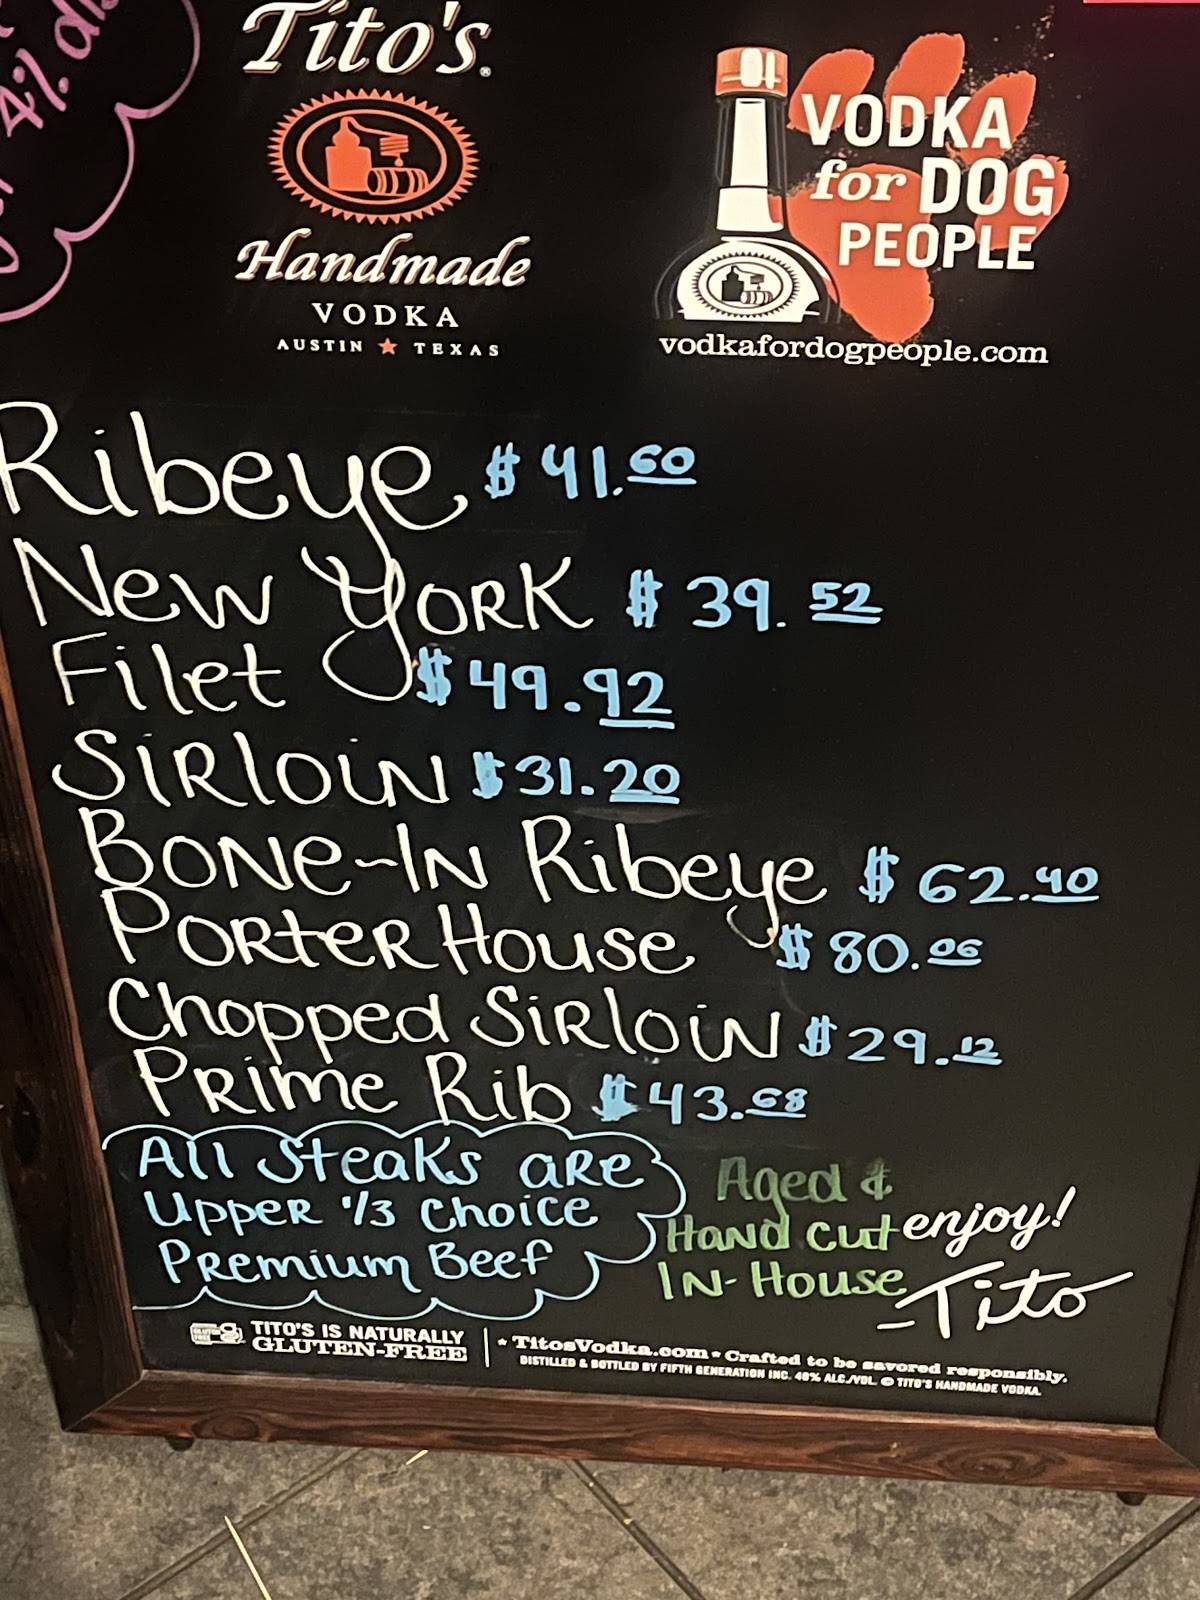 4% di
Tito's.
Handmade
VODKA
AUSTIN ★ TEXAS
VODKA
for DOG
PEOPLE
vodkafordogpeople.com
Ribeye $41.60
New York $39.52
Filet $49.92
Sirloin $31.20
Bone-In Ribeye $62.40
Porter House $80.06
Chopped Sirloin $29.12
Prime Rib $43.68
All Steaks are
Upper 1/3 Choice
Premium Beef
Aged &
Hand cut
In-House
enjoy!
-Tito
GLUTEN FREE
TITO'S IS NATURALLY
GLUTEN-FREE
* TitosVodka.com * Crafted to be savored responsibly.
DISTILLED & BOTTLED BY FIFTH GENERATION INC. 40% ALC./VOL. © TITO'S HANDMADE VODKA.